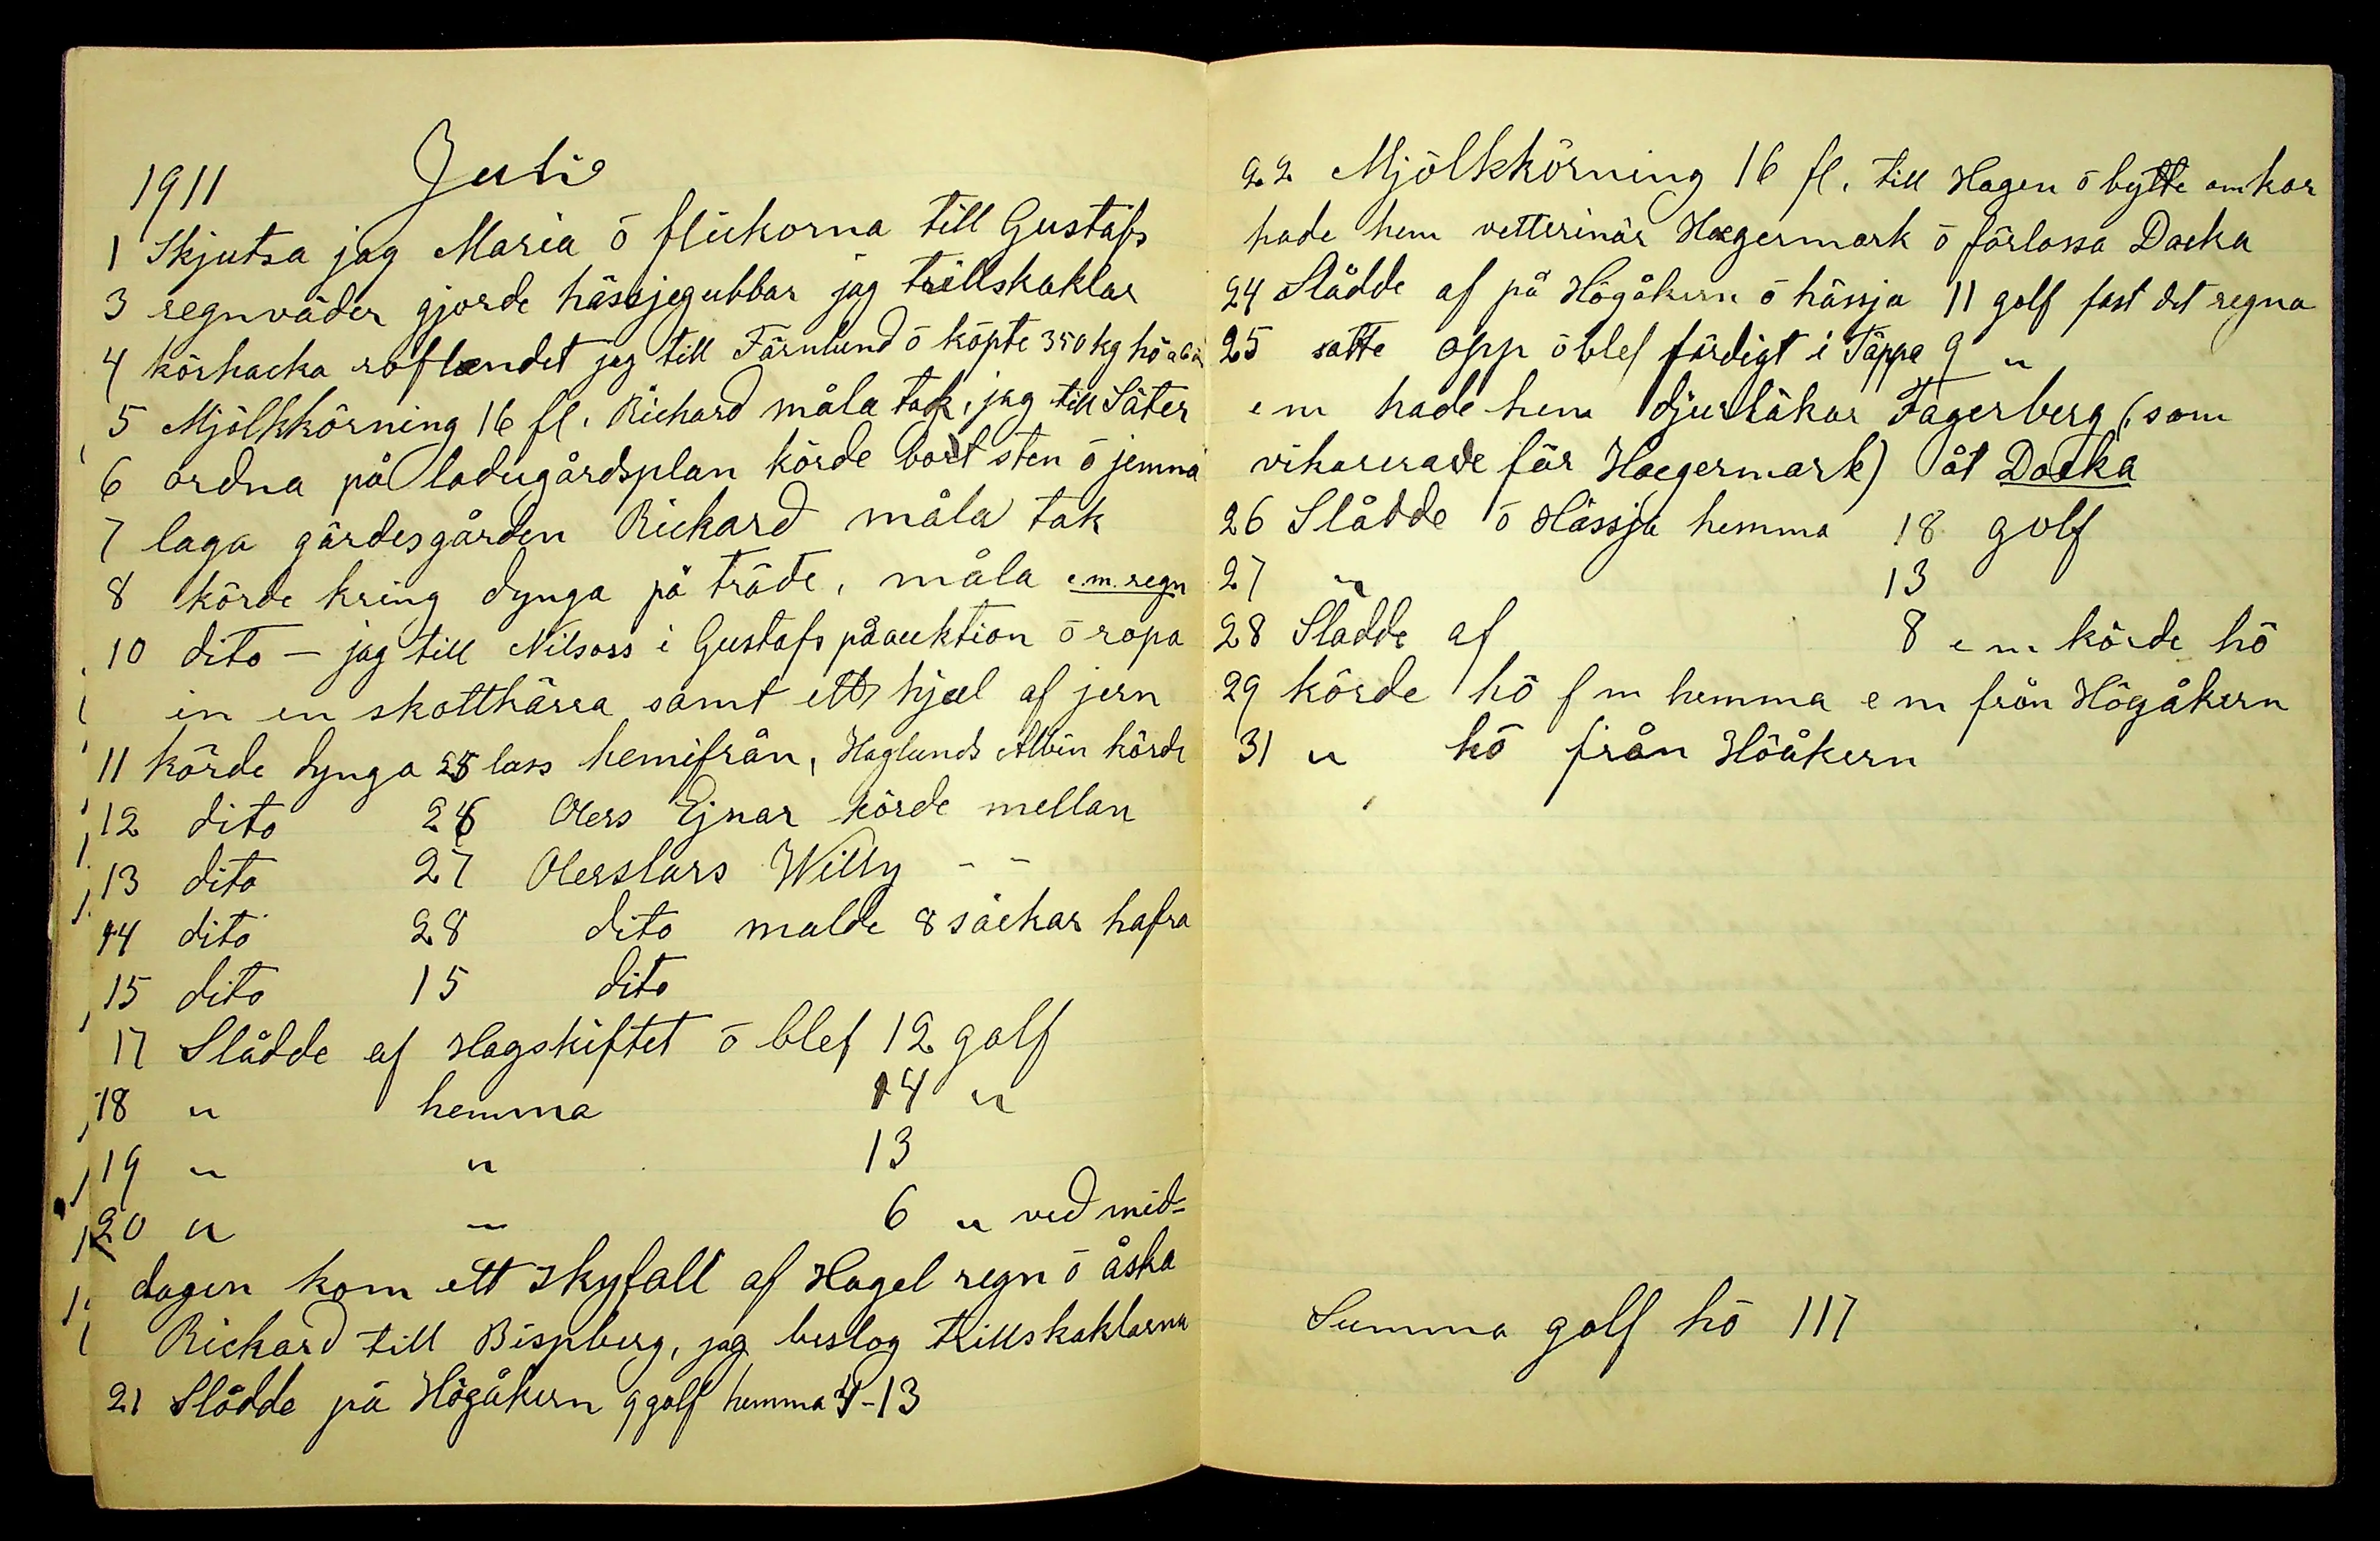 1911 Juli
1 Skjutsa jag Maria ō flickorna till Gustafs
3 regnväder gjorde hässjegubbar jag trillskaklar
4 körhacka roflandet jag till Färnlund ō köpte 350 kg hö
5 Mjölkkörning 16 fl. Rickard måla tak, jag till Säter
6 ordna på ladugårdsplan körde bort sten ō jemna
7 laga gärdesgården Rickard måla tak
8 körde kring dynga på träde, måla e.m. regn
10 dito — jag till Nilsoss i Gustafs på auktion ō ropa
in en skottkärra samt ett hjul af jern
11 körde dynga 25 lass hemifrån, Haglunds Albin körde
12 dito 26 Olers Ejnar körde mellan
13 dito 27 Olerslars Willy - -
14 dito 28 dito malde 8 säckar hafra
15 dito 15 dito
17 Slådde af Hagskiftet ō blef 12 golf
18 " hemma 14 "
19 " " 13
20 " " 6 " ved mid=
dagen kom ett skyfall af Hagel regn ō åska
Rickard till Bispberg, jag beslog trillskaklarna
21 Slådde på Högåkern 9 golf hemma 4-13
22 Mjölkkörning 16 fl. till Hagen ō bytte om kor
hade hem vetterinär Hægermark ō förlossa Docka
24 Slådde af på Högåkern ō hässja 11 golf fast det regna
25 satte opp ō blef färdigt i Täppa 9 "
e m hade hem djurläkar Fagerberg (som
vikarerade för Hægermark) åt Docka
26 Slådde ō Hässja hemma 18 golf
27 " 13
28 Slådde af 8 e m körde hö
29 körde hö f m hemma e m från Högåkern
31 " hö från Höåkern
Summa golf hö 117